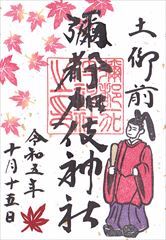 土御前
彌都加伎神社
令和五年
十月十五日